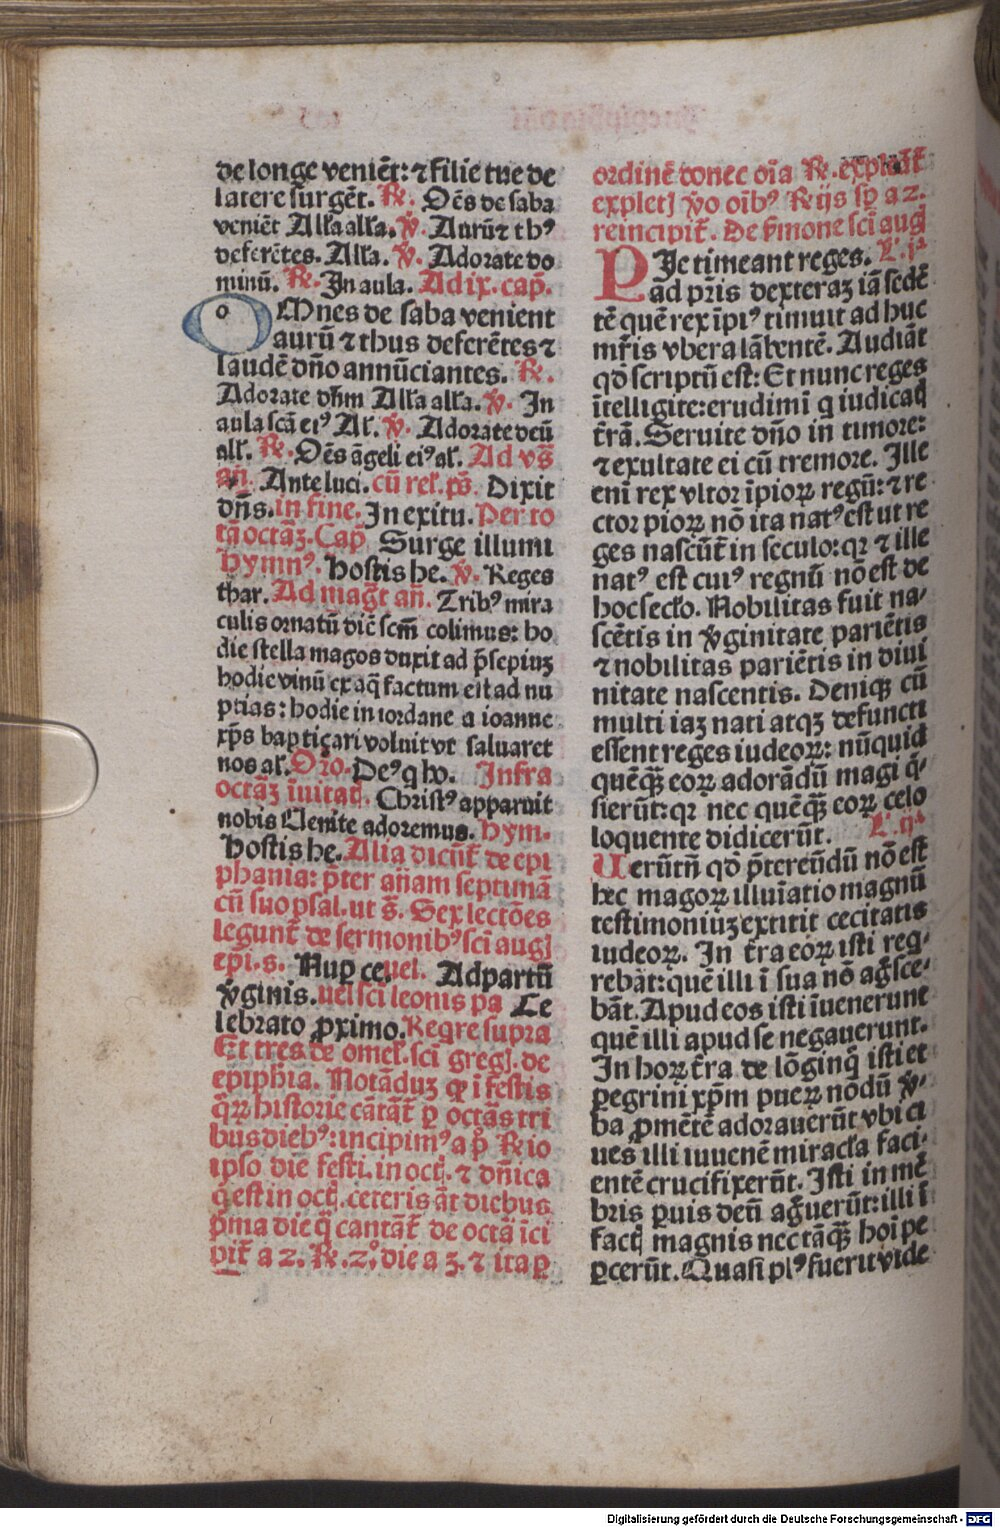 de longe veniēt: ⁊ filie tue de
latere surgēt. ℟. Oēs de saba
veniēt Alľa alľa. ℣. Aurū ⁊ thꝰ
deferētes. Alľa. ℣. Adorate do
minū. ℟. In aula. Ad ix. cap̄.
OMnes de saba venient
aurū ⁊ thus deferētes ⁊
laudē dn̄o annūciantes. ℟.
Adorate dn̄m Alľa alľa. ℣. In
aula scā eiꝰ Aľ. ℣. Adorate deū
alľ. ℟. Oēs āgeli eiꝰ aľ. Ad vs̄
an̄. Ante luci. cū reľ. ps̄. Dixit
dn̄s. in fine. In exitu. Per to
tā octāꝫ. Cap̄. Surge illumi
hymnꝰ. Hostis he. ℣. Reges
thar. Ad maḡt an̄. Tribꝰ mira
culis ornatū diē scm̄ colimus: ho
die stella magos duxit ad p̄sepiuꝫ
hodie vinū ex aq̄ factum est ad nu
ptias: hodie in iordane a ioanne
xp̄s baptiçari voluit vt saluaret
nos aľ. Or̄o. Deꝰ q ho. Infra
octāꝫ īuitaꝭ. Christꝰ apparuit
nobis Uenite adoremus. Hym.
Hostis he. Alia dicūt̄ de epi
phania: p̄ter an̄am septimā
cū suo psal. ut s̄. Sex lectōes
legunt̄ de sermonibꝰ sci augꝭ
epi. s. Nuꝑ ce. uel. Ad partū
v̄ginis. uel sci leonis pa Ce
lebrato ꝓximo. Reqre supra
Et tres de omeľ. sci gregꝭ. de
epiph̄ia. Notāduꝫ ꝙ ī festis
q̄ꝝ historie cātāt̄ ꝑ octāas tri
bus diebꝰ: incipimꝰ a p̄ ℟io
ipso die festi. in octꝭ. ⁊ dn̄ica
q̄ est in octꝭ. ceteris āt diebus
p̄ma die q̄ cantāt̄ de octā īci
pit̄ a 2. ℟. 2.° die a 3. ⁊ ita ꝑ
ordinē donec oīa ℟. explāt̄
expletꝭ v̄o oībꝰ ℟ijs sp̄ a 2.
reincipit̄. De s̄mone sci augꝭ
PIe timeant reges. L'. jª
ad pr̄is dexteraꝫ iā sedē
tē quē rex īpiꝰ timuit ad huc
mr̄is vbera lābentē. Audiāt
qđ scriptū est: Et nunc reges
ītelligite: erudimī q iudicatꝭ
t̄rā. Seruite dn̄o in timore:
⁊ exultate ei cū tremore. Ille
eni rex vltor īpioꝝ regū: ⁊ re
ctor pioꝝ nō ita natꝰ est ut re
ges nascūt̄ in seculo: qꝛ ⁊ ille
natꝰ est cuiꝰ regnū nō est de
hoc secľo. Nobilitas fuit na⸗
scētis in v̄ginitate pariētis
⁊ nobilitas pariētis in diui
nitate nascentis. Deniqꝫ cū
multi iaꝫ nati atqꝫ defuncti
essent reges iudeoꝝ: nūquid
quēqꝫ eoꝝ adorādū magi q̄⸗
sierūt: qꝛ nec quēqꝫ eoꝝ celo
loquente didicerūt. L'. ijª
Uerūtn̄ qđ p̄tereūdū nō est
hec magoꝝ illuīatio magnū
testimoniuꝫ extitit cecitatis
iudeoꝝ. In t̄ra eoꝝ isti reqͥ⸗
rebāt: quē illi ī sua nō aḡsce⸗
bāt. Apud eos isti īuenerunt
quē illi apud se negauerunt.
In hoꝝ t̄ra de lōginqͥ isti et
ꝑegrini xp̄m pueꝝ nōdū v̄⸗
ba ꝓmētē adorauerūt vbi ci
ues illi iuuenē miracľa faci⸗
entē crucifixerūt. Isti in mē
bris ꝑuis deū aḡuerūt: illi ī
factꝭ magnis nec tāqꝫ hoī pe
ꝑcerūt. Quasi plꝰ fuerit vide
Digitalisierung gefördert durch die Deutsche Forschungsgemeinschaft - DFG